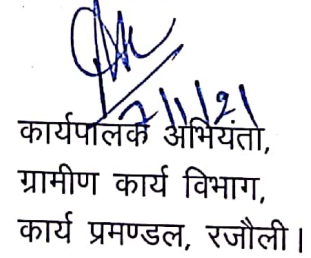 7/1/21
कार्यपालक अभियंता,
ग्रामीण कार्य विभाग,
कार्य प्रमण्डल, रजौली।